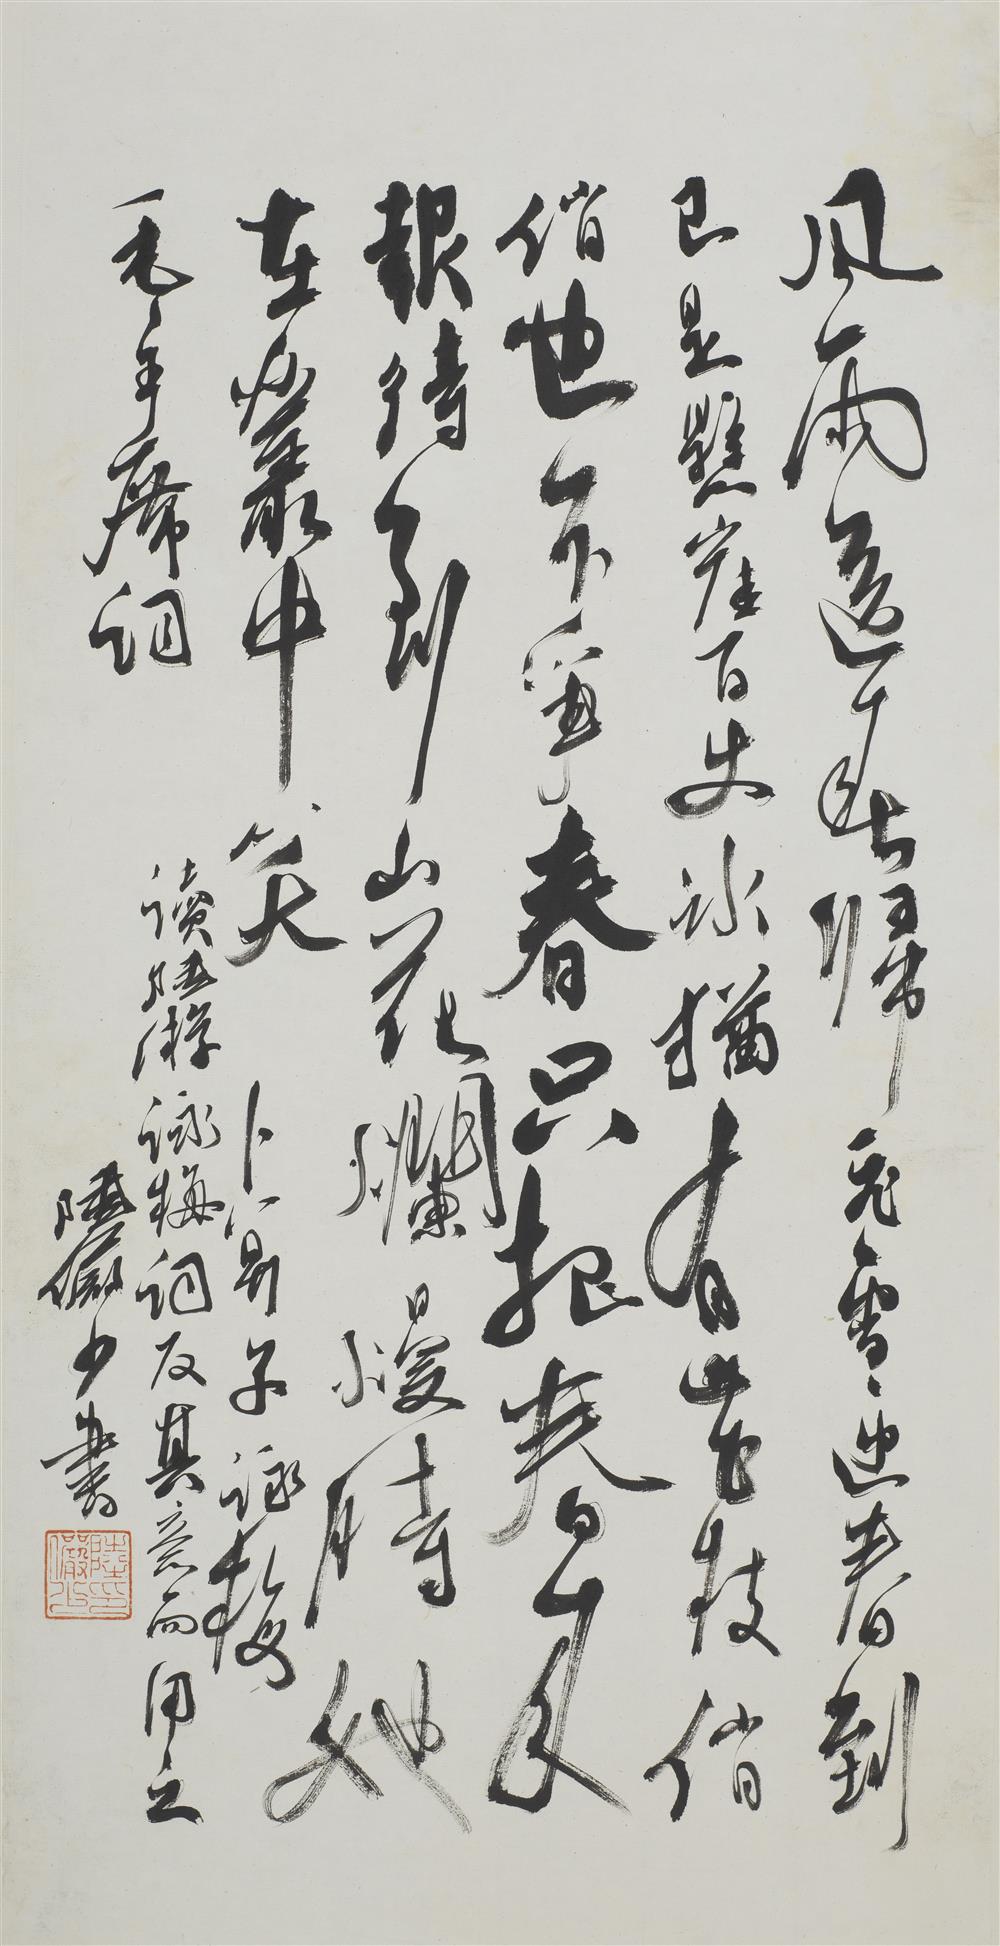 風雨送春歸飛雪迎春到
已是懸崖百丈冰猶有花枝俏
俏也不爭春只把春來
報待到山花爛漫時她
在叢中笑
卜算子 詠梅
毛主席詞
讀陸游詠梅詞反其意而用之
陸儼少書
陸儼少印